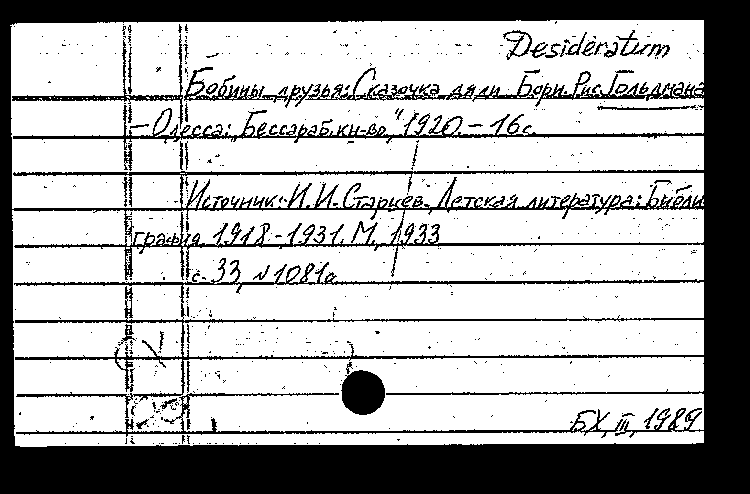 Desideratum
Бобины друзья: Сказочка дяди Бори. Рис. Гольдмана
– Одесса: „Бессараб. кн-во", 1920. – 16 с.
Источник: И. И. Старцев. Детская литература: Библи
графия. 1918-1931. М., 1933
с. 33, № 1081а
БХ, III, 1989